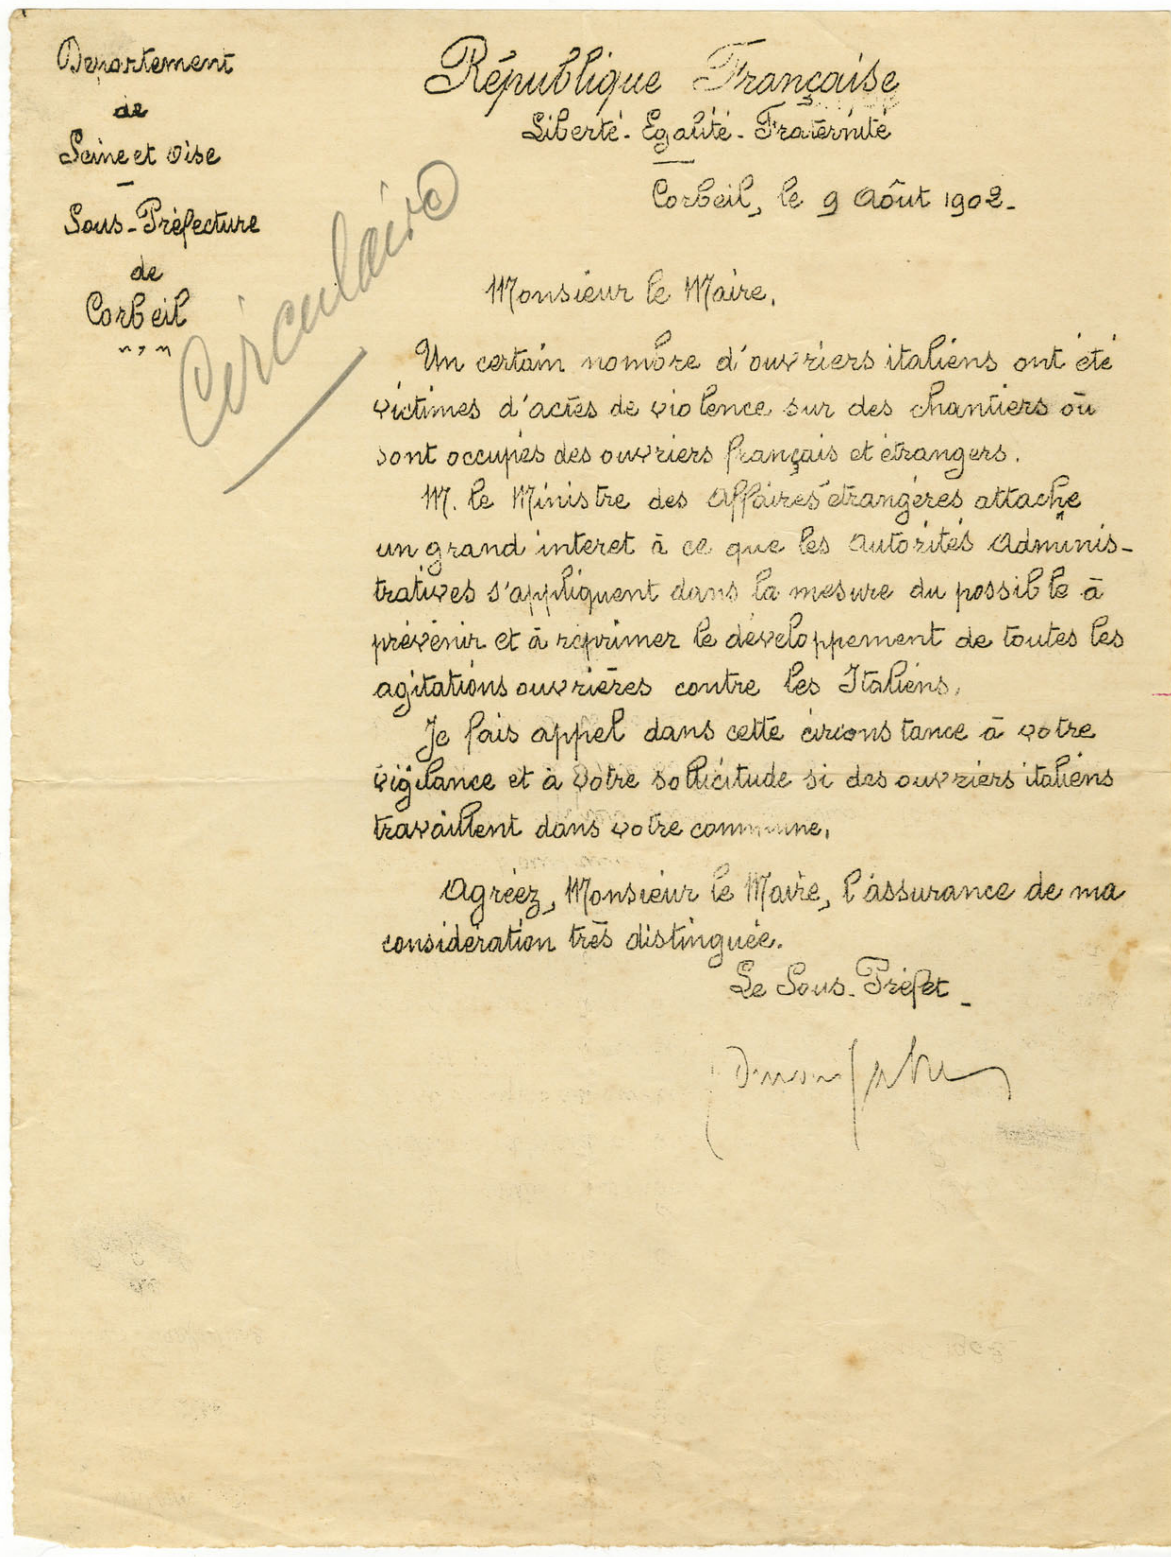 Departement
de
Seine et Oise
Sous-Préfecture
de
Corbeil
Circulaire
République Française
Liberté - Egalité - Fraternité
Corbeil, le 9 Aôut 1902.
Monsieur le Maire,
Un certain nombre d'ouvriers italiens ont été
victimes d'actes de violence sur des chantiers où
sont occupés des ouvriers français et étrangers.
M. le Ministre des Affaires étrangères attache
un grand interet à ce que les Autorités Adminis-
tratives s'appliquent dans la mesure du possible à
prévenir et à réprimer le développement de toutes les
agitations ouvrières contre les Italiens.
Je fais appel dans cette circonstance à votre
vigilance et à votre sollicitude si des ouvriers italiens
travaillent dans votre commune.
Agréez, Monsieur le Maire, l'assurance de ma
considération très distinguée.
Le Sous-Préfet